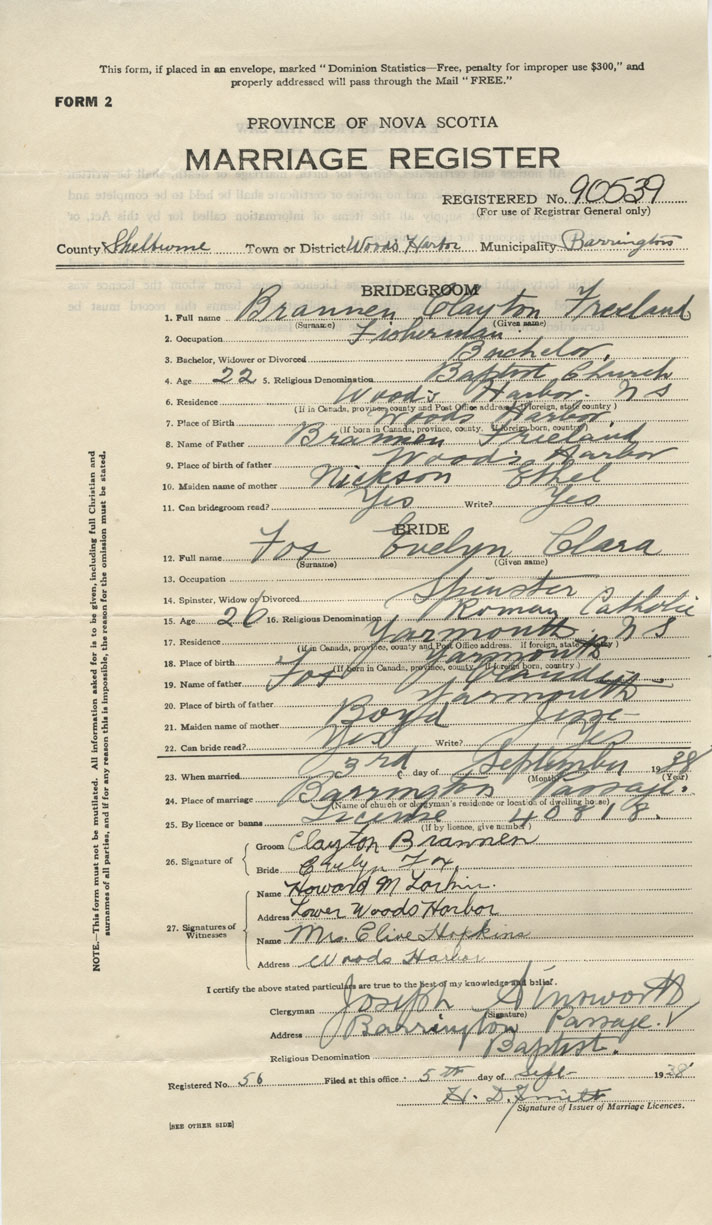 This form, if placed in an envelope, marked "Dominion Statistics—Free, penalty for improper use $300," and
properly addressed will pass through the Mail "FREE."
FORM 2
PROVINCE OF NOVA SCOTIA
MARRIAGE REGISTER
REGISTERED No. 90539
(For use of Registrar General only)
County Shelburne Town or District Woods Harbor Municipality Barrington
BRIDEGROOM
1. Full name Brannen Clayton Freeland
(Surname) (Given name)
2. Occupation Fisherman
3. Bachelor, Widower or Divorced Bachelor.
4. Age 22 5. Religious Denomination Baptist Church
6. Residence Woods Harbor N S
(If in Canada, province, county and Post Office address. If foreign, state country)
7. Place of Birth Woods Harbor
(If born in Canada, province, county. If foreign born, country)
8. Name of Father Brannen Freeland
9. Place of birth of father Woods Harbor
10. Maiden name of mother Nickson Ethel
11. Can bridegroom read? Yes Write? Yes
BRIDE
12. Full name Fox Evelyn Clara
(Surname) (Given name)
13. Occupation
14. Spinster, Widow or Divorced Spinster
15. Age 20 16. Religious Denomination Roman Catholic
17. Residence Yarmouth N S
(If in Canada, province, county and Post Office address. if foreign, state country)
18. Place of birth Yarmouth
(If born in Canada, province, county. if foreign born, country)
19. Name of father Fox
20. Place of birth of father Yarmouth
21. Maiden name of mother Boyd
22. Can bride read? Yes Write? Yes
23. When married 3rd day of September 1938
(Month) (Year)
24. Place of marriage Barrington Passage.
(Name of church or clergyman's residence or location of dwelling house)
25. By licence or banns License 40818.
(If by licence, give number)
26. Signature of
Groom Clayton Brannen
Bride Evelyn Fox.
27. Signatures of Witnesses
Name Howard M
Address Lower Woods Harbor
Name Mrs. Clive Hopkins
Address Woods Harbor
I certify the above stated particulars are true to the best of my knowledge and belief.
Clergyman Joseph
(Signature)
Address Barrington Passage.
Religious Denomination Baptist.
Registered No. 56 Filed at this office 5th day of Sept 1938
H. D. Smith
Signature of Issuer of Marriage Licences.
[SEE OTHER SIDE]
NOTE.—This form must not be mutilated. All information asked for is to be given, including full Christian and
surnames of all parties, and if for any reason this is impossible, the reason for the omission must be stated.